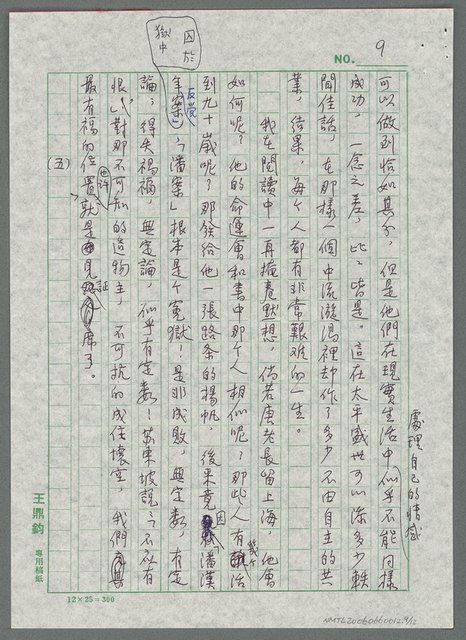 NO. 9
囚於獄中
處理自己的情感
可以做到恰如其分，但是他們在現實生活中似乎不能同樣
成功，一念之差，比比皆是。這在太平盛世可以添多少軼
聞佳話，在那樣一個中流漩渦裡却作了多少不由自主的共
業，結果，每個人都有非常艱難的一生。
我在閱讀中一再掩卷默想，倘若唐老長留上海，他會
如何呢？他的命運會和書中那個人相似呢？那些人有幾個活
到九十歲呢？那發給他一張路條的楊帆，後來竟因「潘漢
年反黨案」，「潘案」根本是個冤獄！是非成敗，無定數，有定
論，得失禍福，無定論，似乎有定數！蘇東坡說「不應有
恨」，對那不可知的造物主，不可抗的成住壞空，我們
最有福的位置也許就是見証席了。
（五）
王鼎鈞 專用稿紙
12×25=300
NMTL20060060012.9/12